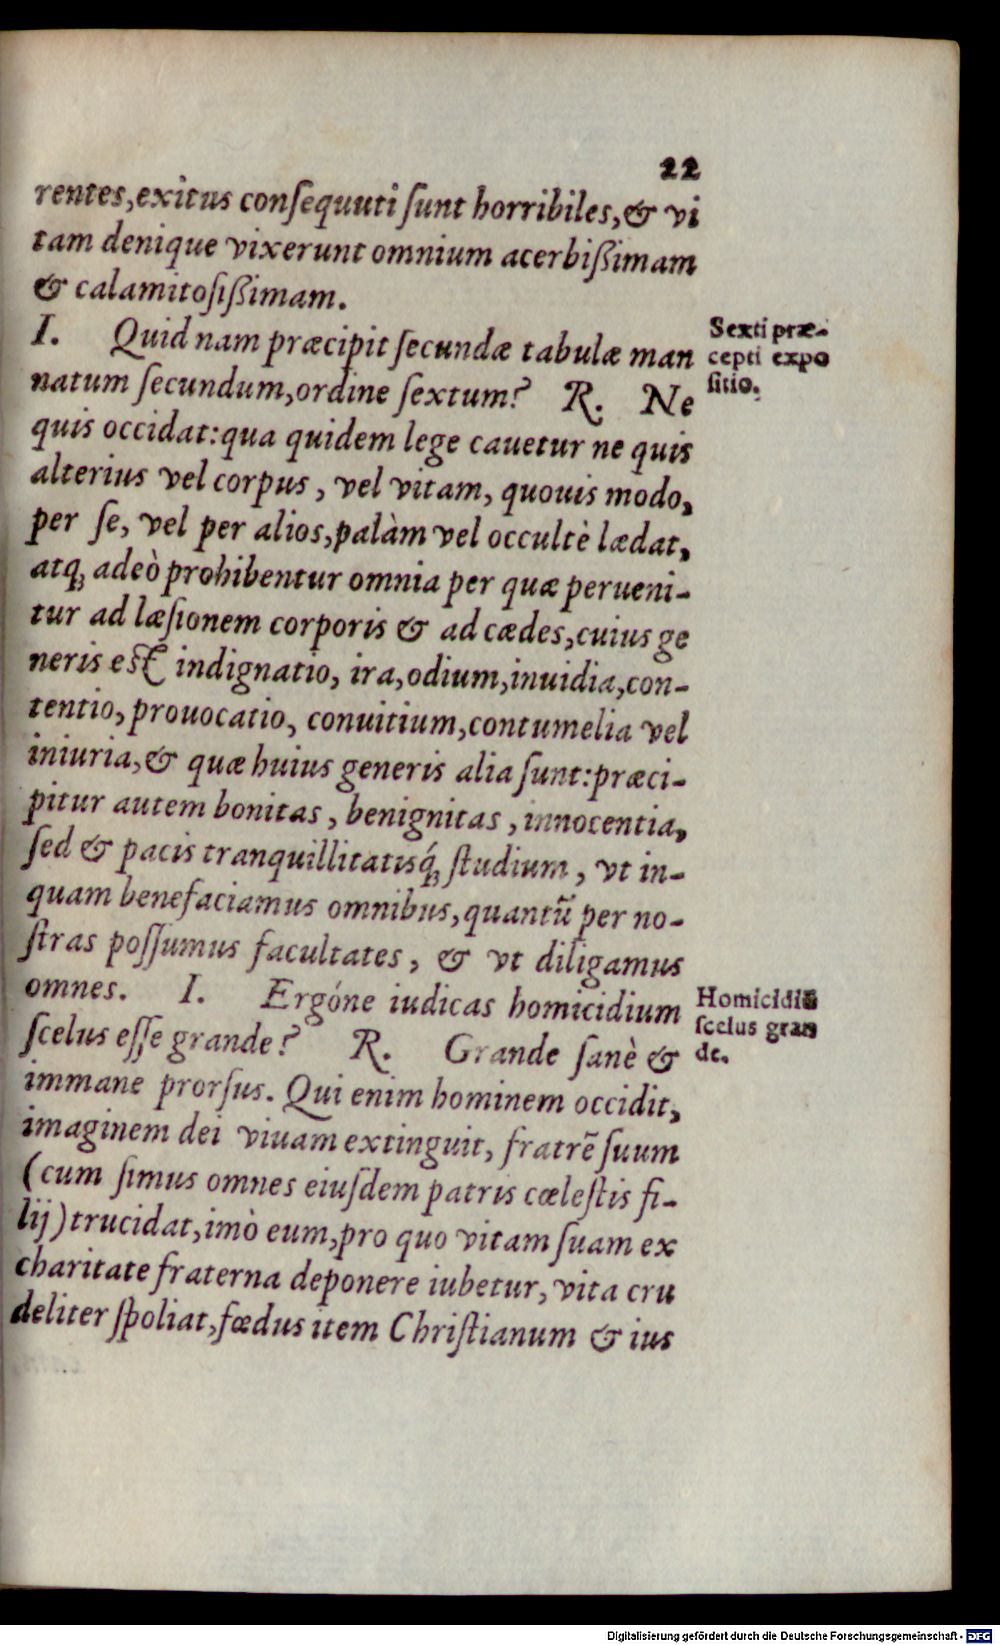 22
rentes,exitus conſequuti ſunt horribiles,& vi
tam denique vixerunt omnium acerbißimam
& calamitoſißimam.
I. Quid nam præcipit ſecundæ tabulæ man
natum ſecundum,ordine ſextum? R. Ne
quis occidat:qua quidem lege cauetur ne quis
alterius vel corpus, vel vitam, quouis modo,
per ſe, vel per alios,palàm vel occultè lædat,
atq; adeò prohibentur omnia per quæ perueni-
tur ad læſionem corporis & ad cædes,cuius ge
neris eſt indignatio, ira,odium,inuidia,con-
tentio,prouocatio, conuitium,contumelia vel
iniuria,& quæ huius generis alia ſunt:præci-
pitur autem bonitas, benignitas, innocentia,
ſed & pacis tranquillitatisq́; ſtudium, vt in-
quam benefaciamus omnibus,quantũ per no-
ſtras poſſumus facultates, & vt diligamus
omnes. I. Ergóne iudicas homicidium
ſcelus eſſe grande? R. Grande ſanè &
immane prorſus. Qui enim hominem occidit,
imaginem dei viuam extinguit, fratrẽ ſuum
(cum ſimus omnes eiuſdem patris cœleſtis fi-
lij)trucidat,imò eum,pro quo vitam ſuam ex
charitate fraterna deponere iubetur,vita cru
deliter ſpoliat,fœdus item Chriſtianum & ius
Sexti præ-
cepti expo
ſitio.
Homicidiũ
ſcelus gran
de.
Digitalisierung gefördert durch die Deutsche Forschungsgemeinschaft - DFG